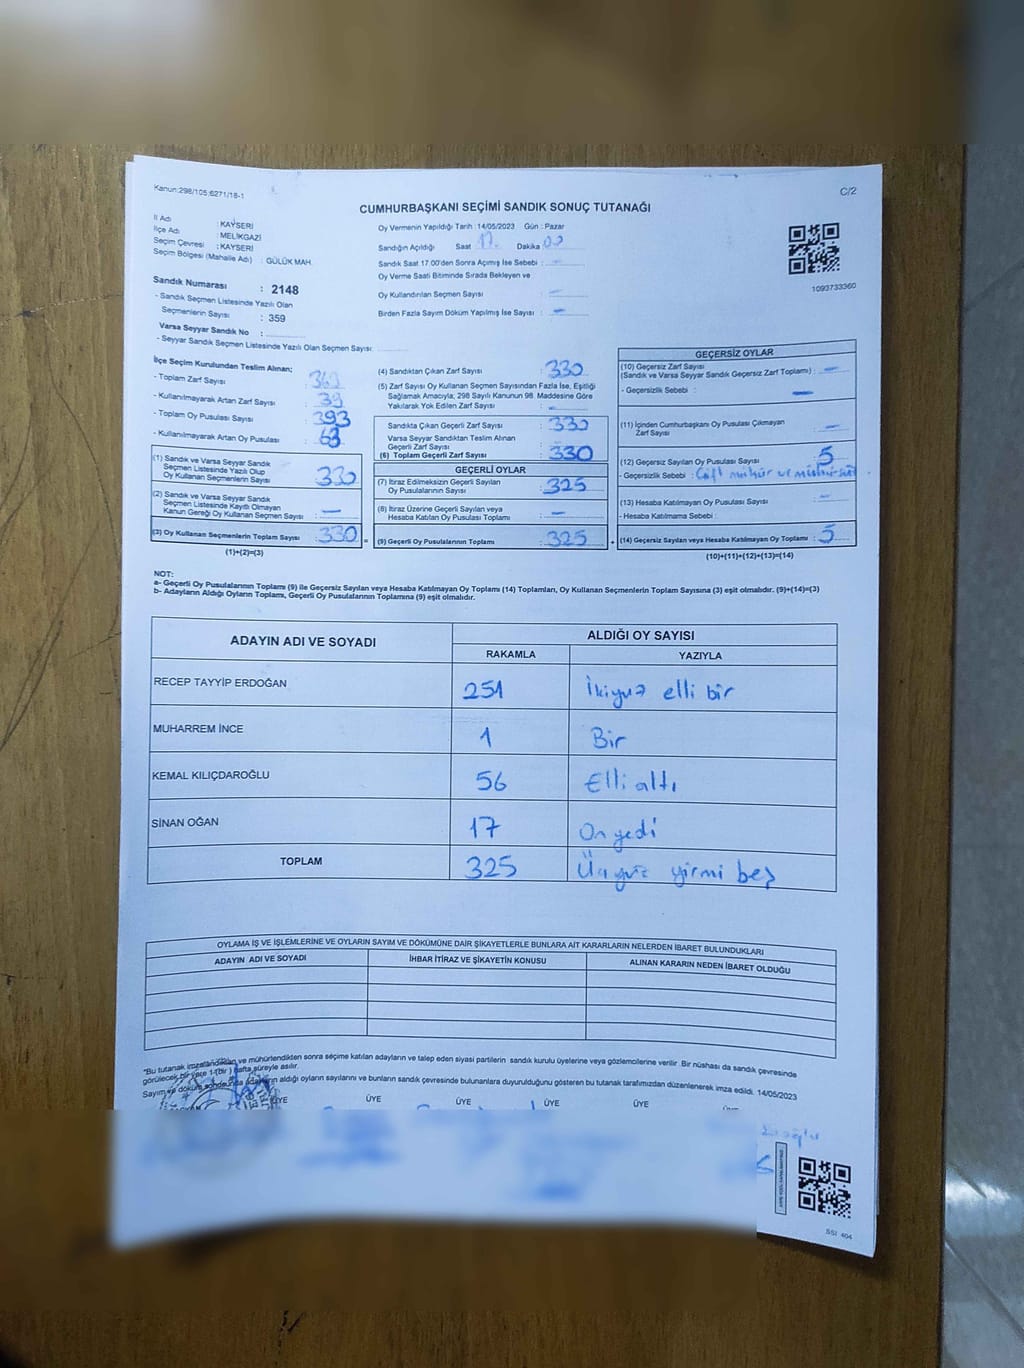 Kanun:298/105;6271/18-1
C/2
CUMHURBAŞKANI SEÇİMİ SANDIK SONUÇ TUTANAĞI
İl Adı : KAYSERİ
İlçe Adı : MELİKGAZİ
Seçim Çevresi : KAYSERİ
Seçim Bölgesi (Mahalle Adı) : GÜLÜK MAH.
Oy Vermenin Yapıldığı Tarih : 14/05/2023 Gün : Pazar
Sandığın Açıldığı Saat 17. Dakika 00
Sandık Saat 17.00'den Sonra Açımış İse Sebebi : –
Oy Verme Saati Bitiminde Sırada Bekleyen ve
Oy Kullandırılan Seçmen Sayısı : –
Birden Fazla Sayım Döküm Yapılmış İse Sayısı : –
1093733360
Sandık Numarası : 2148
- Sandık Seçmen Listesinde Yazılı Olan
Seçmenlerin Sayısı : 359
Varsa Seyyar Sandık No :
- Seyyar Sandık Seçmen Listesinde Yazılı Olan Seçmen Sayısı:
İlçe Seçim Kurulundan Teslim Alınan;
- Toplam Zarf Sayısı :
- Kullanılmayarak Artan Zarf Sayısı : 39
- Toplam Oy Pusulası Sayısı : 393
- Kullanılmayarak Artan Oy Pusulası : 63
(1) Sandık ve Varsa Seyyar Sandık
Seçmen Listesinde Yazılı Olup
Oy Kullanan Seçmenlerin Sayısı : 330
(2) Sandık ve Varsa Seyyar Sandık
Seçmen Listesinde Kayıtlı Olmayan
Kanun Gereği Oy Kullanan Seçmen Sayısı : –
(3) Oy Kullanan Seçmenlerin Toplam Sayısı : 330 =
(1)+(2)=(3)
(4) Sandıktan Çıkan Zarf Sayısı : 330
(5) Zarf Sayısı Oy Kullanan Seçmen Sayısından Fazla İse, Eşitliği
Sağlamak Amacıyla; 298 Sayılı Kanunun 98. Maddesine Göre
Yakılarak Yok Edilen Zarf Sayısı : –
Sandıkta Çıkan Geçerli Zarf Sayısı : 330
Varsa Seyyar Sandıktan Teslim Alınan
Geçerli Zarf Sayısı :
(6) Toplam Geçerli Zarf Sayısı : 330
GEÇERLİ OYLAR
(7) İtiraz Edilmeksizin Geçerli Sayılan
Oy Pusulalarının Sayısı : 325
(8) İtiraz Üzerine Geçerli Sayılan veya
Hesaba Katılan Oy Pusulası Toplamı : –
(9) Geçerli Oy Pusulalarının Toplamı : 325 +
GEÇERSİZ OYLAR
(10) Geçersiz Zarf Sayısı
(Sandık ve Varsa Seyyar Sandık Geçersiz Zarf Toplamı) : –
- Geçersizlik Sebebi : –
(11) İçinden Cumhurbaşkanı Oy Pusulası Çıkmayan
Zarf Sayısı : –
(12) Geçersiz Sayılan Oy Pusulası Sayısı : 5
- Geçersizlik Sebebi : Çift mühür ve mühürsüz
(13) Hesaba Katılmayan Oy Pusulası Sayısı : –
- Hesaba Katılmama Sebebi :
(14) Geçersiz Sayılan veya Hesaba Katılmayan Oy Toplamı : 5
(10)+(11)+(12)+(13)=(14)
NOT:
a- Geçerli Oy Pusulalarının Toplamı (9) ile Geçersiz Sayılan veya Hesaba Katılmayan Oy Toplamı (14) Toplamları, Oy Kullanan Seçmenlerin Toplam Sayısına (3) eşit olmalıdır. (9)+(14)=(3)
b- Adayların Aldığı Oyların Toplamı, Geçerli Oy Pusulalarının Toplamına (9) eşit olmalıdır.
ADAYIN ADI VE SOYADI ALDIĞI OY SAYISI
RAKAMLA YAZIYLA
RECEP TAYYİP ERDOĞAN 251 İkiyuz elli bir
MUHARREM İNCE 1 Bir
KEMAL KILIÇDAROĞLU 56 Elli altı
SİNAN OĞAN 17 On yedi
TOPLAM 325 Üçyüz yirmi beş
OYLAMA İŞ VE İŞLEMLERİNE VE OYLARIN SAYIM VE DÖKÜMÜNE DAİR ŞİKAYETLERLE BUNLARA AİT KARARLARIN NELERDEN İBARET BULUNDUKLARI
ADAYIN ADI VE SOYADI İHBAR İTİRAZ VE ŞİKAYETİN KONUSU ALINAN KARARIN NEDEN İBARET OLDUĞU
*Bu tutanak imzalandıktan ve mühürlendikten sonra seçime katılan adayların ve talep eden siyasi partilerin sandık kurulu üyelerine veya gözlemcilerine verilir. Bir nüshası da sandık çevresinde
görülecek bir yere 1 (bir) hafta süreyle asılır.
Sayım ve döküm sonunda adayların aldığı oyların sayılarını ve bunların sandık çevresinde bulunanlara duyurulduğunu gösteren bu tutanak tarafımızdan düzenlenerek imza edildi. 14/05/2023
ÜYE ÜYE ÜYE ÜYE ÜYE
SSI 404